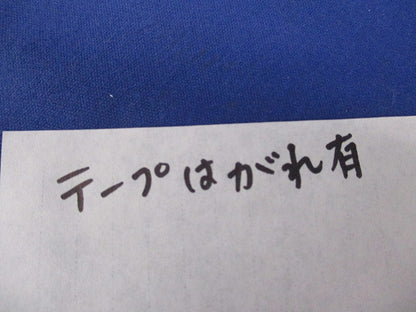 テープはがれ有